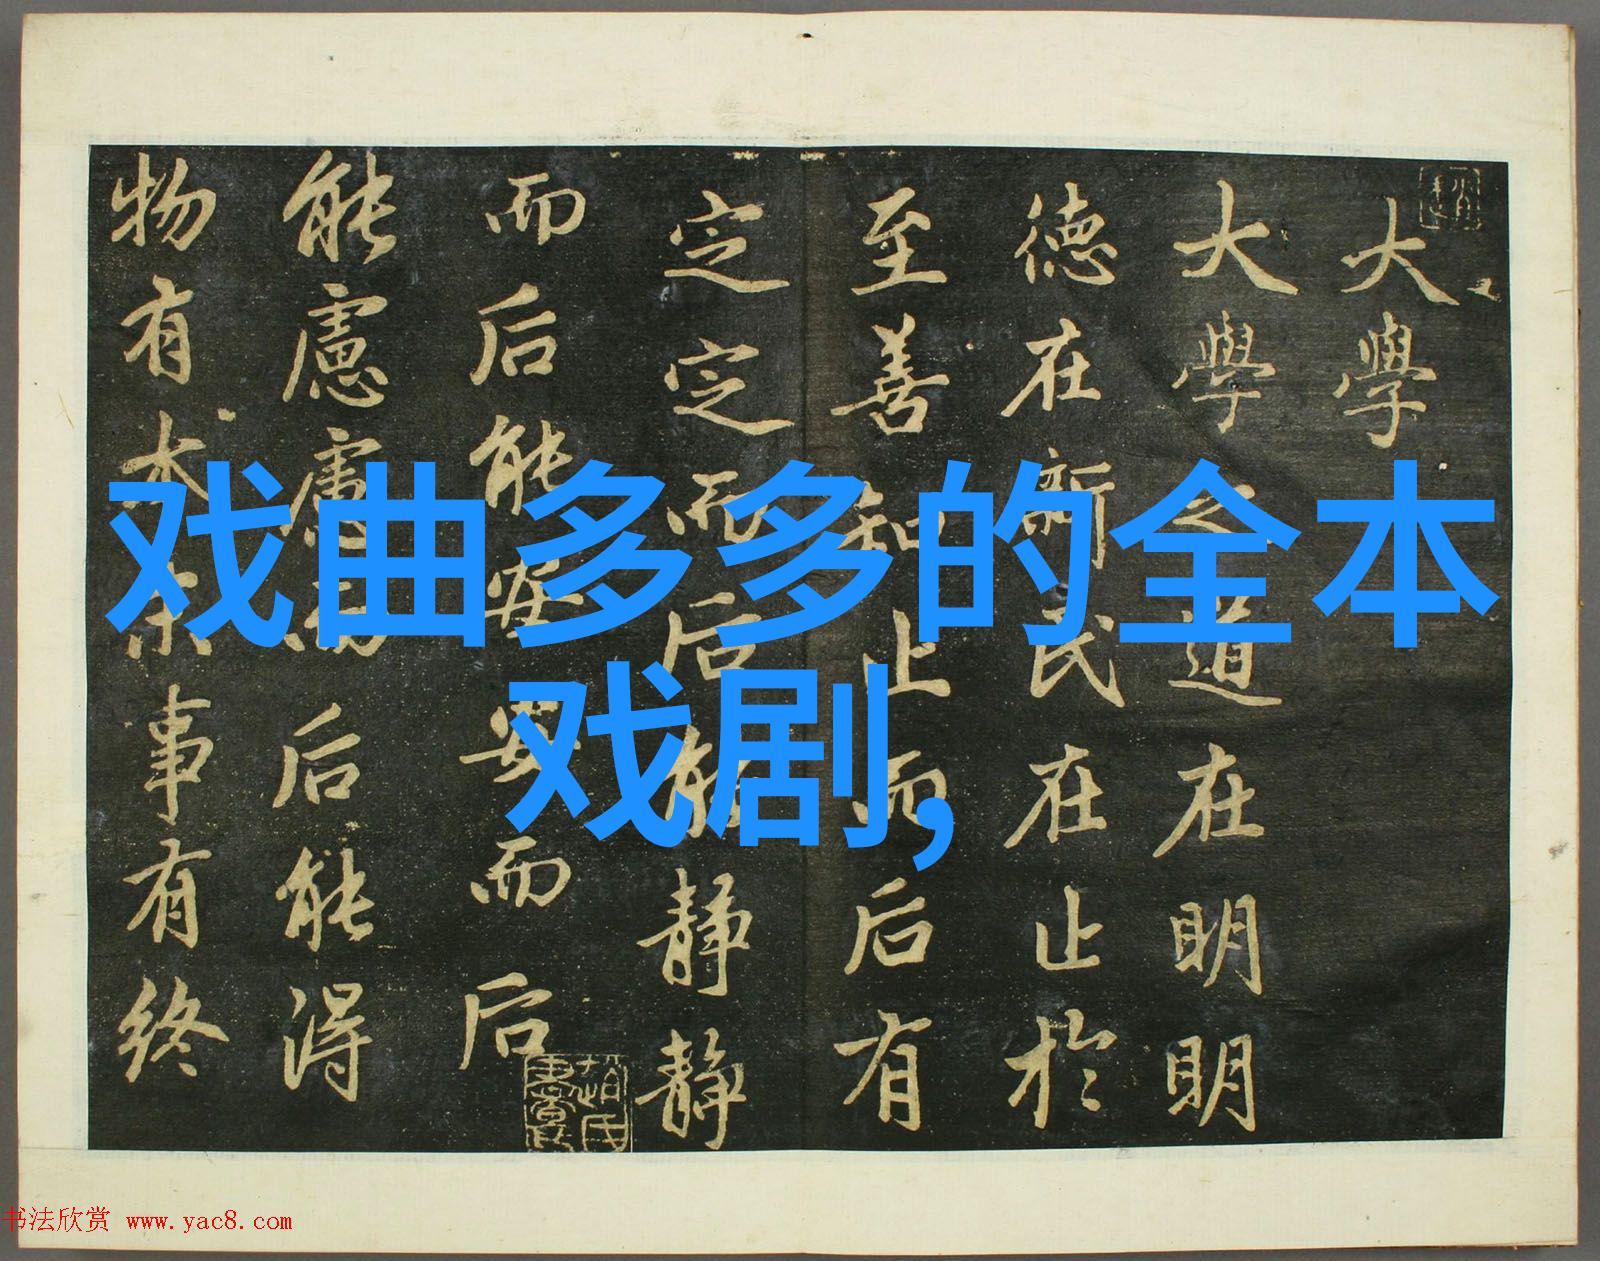 大學
大學之道在明明
德在新民在止於
至善知止而后有
定定而后能静静
而后能安安而后
能慮慮而后能得
物有本末事有終
戏曲多多的全本
戏剧,
书法欣赏 www.yac8.com